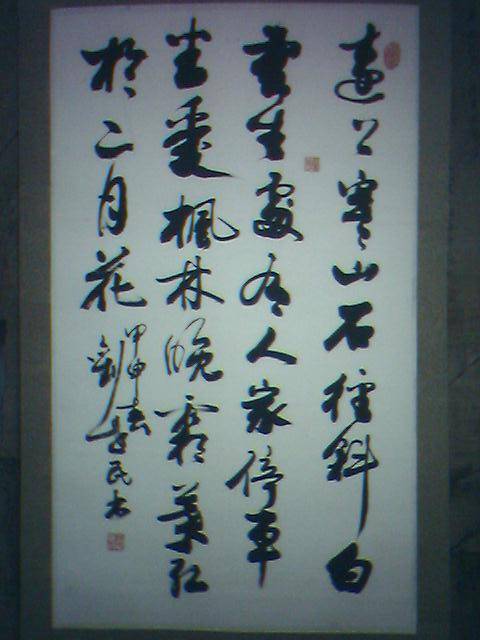 遠上寒山石徑斜白
雲生處有人家停車
坐愛楓林晚霜葉紅
於二月花
甲申春
劉 民書